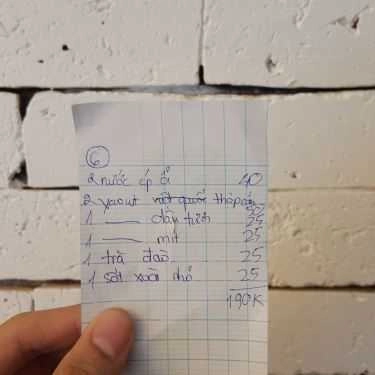 6
2 nước ép ổi 40
2 yaout thập cẩm 50
1 —— dâu tươi 25
1 —— mít 25
1 trà đào 25
1 sữa xoài nhỏ 25
190K